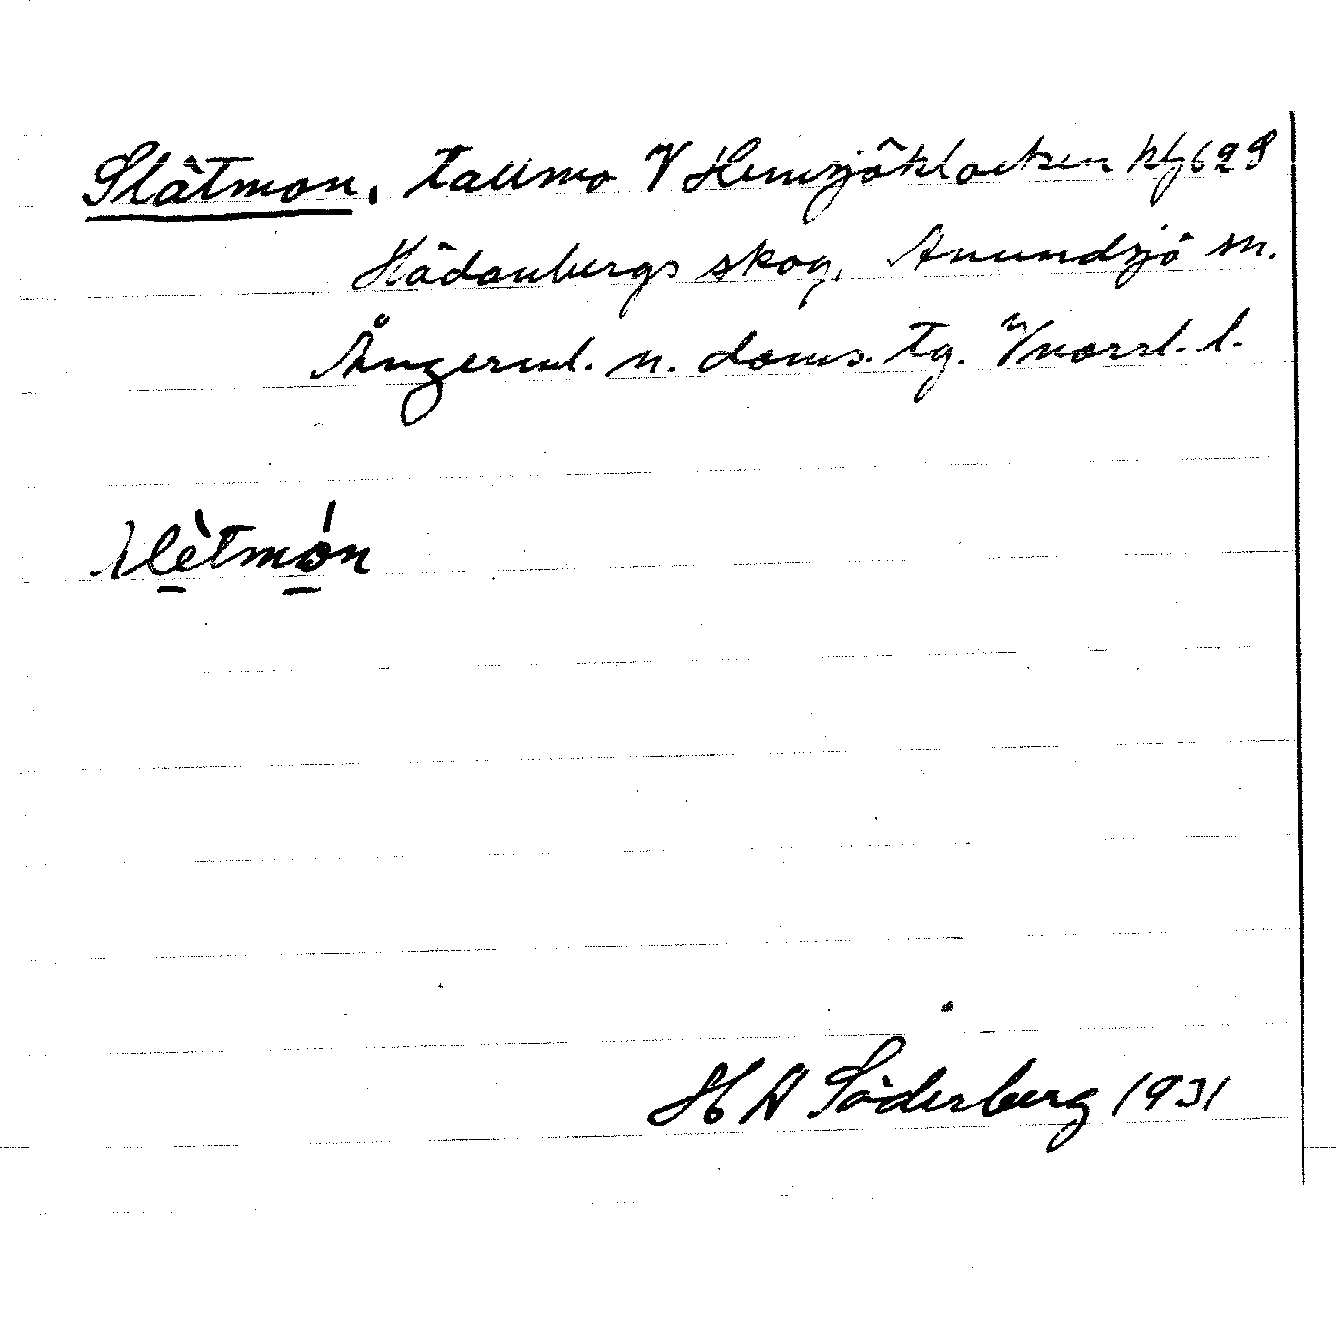 Slätmon, tallmo V Hemsjöklocken kfg 629
Hädanbergs skog, Anundsjö sn.
Ångerml. n. doms. tg. Vnorrl. l.
slètmón
H A Söderberg 1931